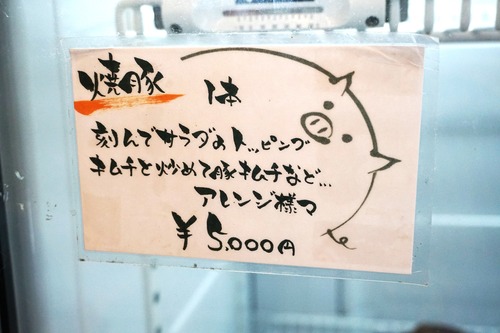 焼豚 1本
刻んでサラダのトッピング
キムチと炒めて豚キムチなど...
アレンジ様々
¥5,000円